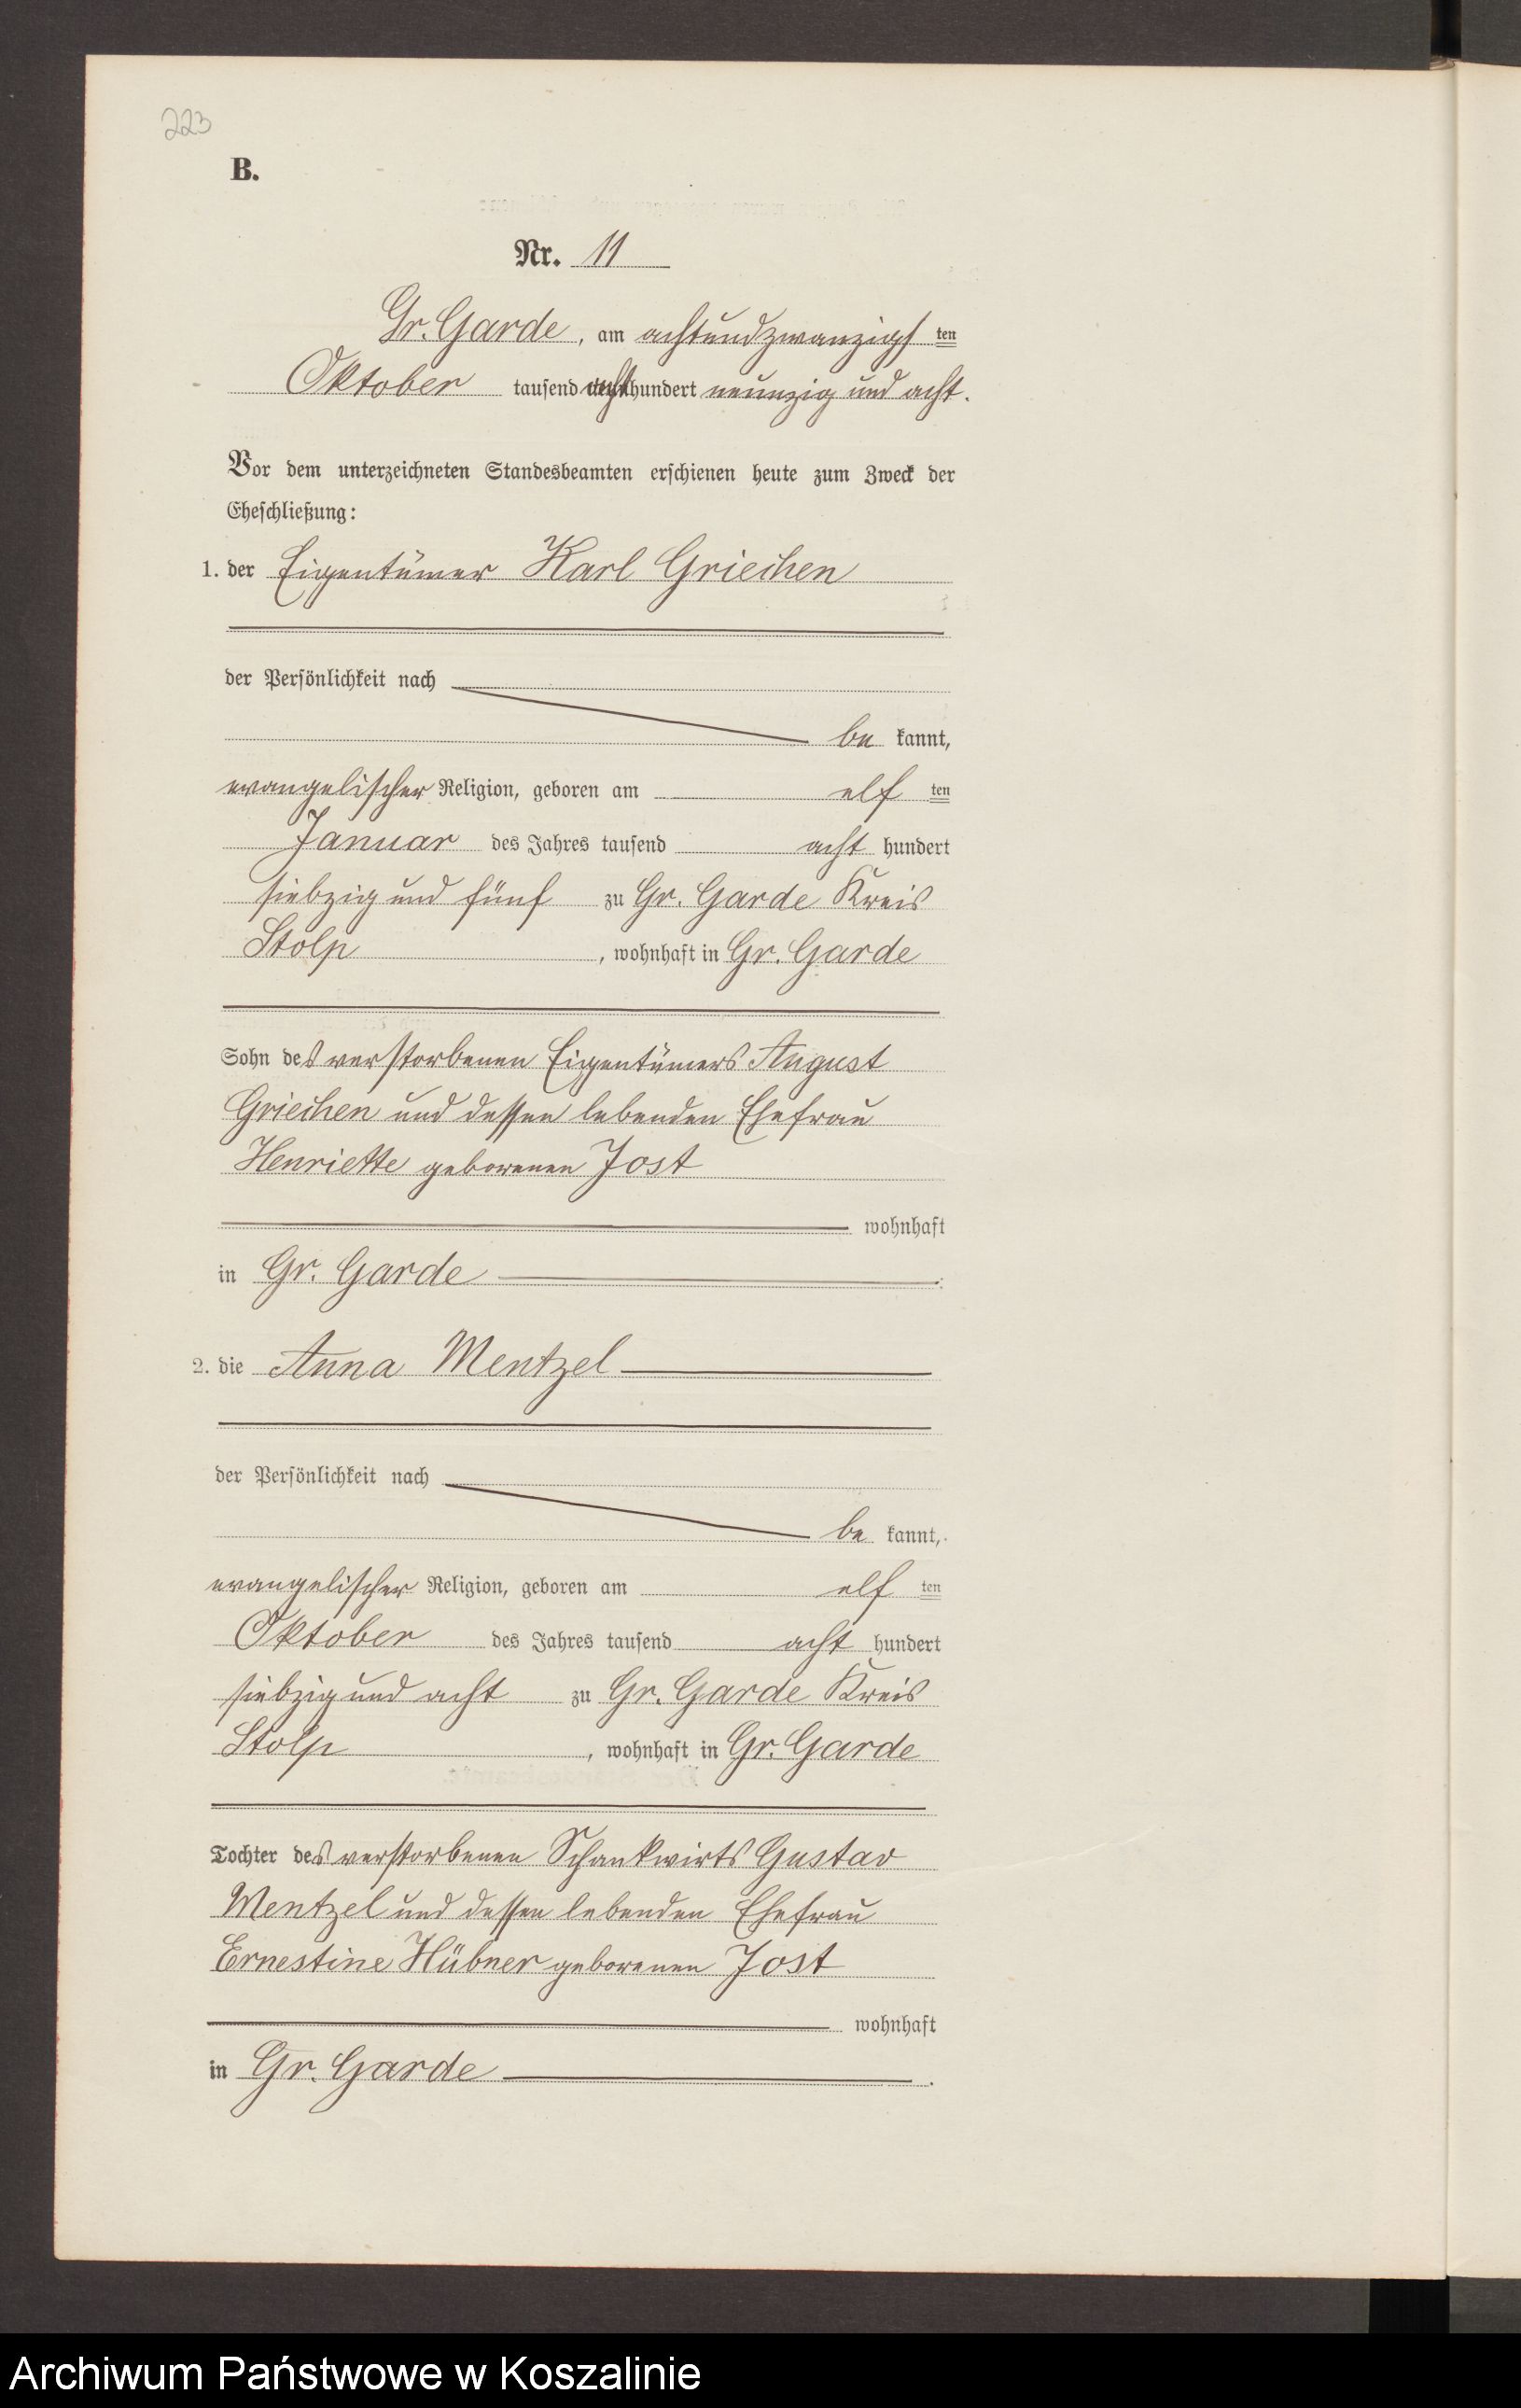 223
B.
Nr. 11
Gr. Garde, am achtundzwanzigsten
Oktober tausend achthundert neunzig und acht.
Vor dem unterzeichneten Standesbeamten erschienen heute zum Zweck der
Eheschließung:
1. der Eigentümer Karl Griechen
der Persönlichkeit nach
be kannt,
evangelischer Religion, geboren am elf ten
Januar des Jahres tausend acht hundert
siebzig und fünf zu Gr. Garde Kreis
Stolp, wohnhaft in Gr. Garde
Sohn des verstorbenen Eigentümers August
Griechen und dessen lebenden Ehefrau
Henriette geborenen Jost
wohnhaft
in Gr. Garde
2. die Anna Mentzel
der Persönlichkeit nach
be kannt,
evangelischer Religion, geboren am elf ten
Oktober des Jahres tausend acht hundert
siebzig und acht zu Gr. Garde Kreis
Stolp, wohnhaft in Gr. Garde
Tochter des verstorbenen Schankwirts Gustav
Mentzel und dessen lebenden Ehefrau
Ernestine Hübner geborenen Jost
wohnhaft
in Gr. Garde.
Archiwum Państwowe w Koszalinie